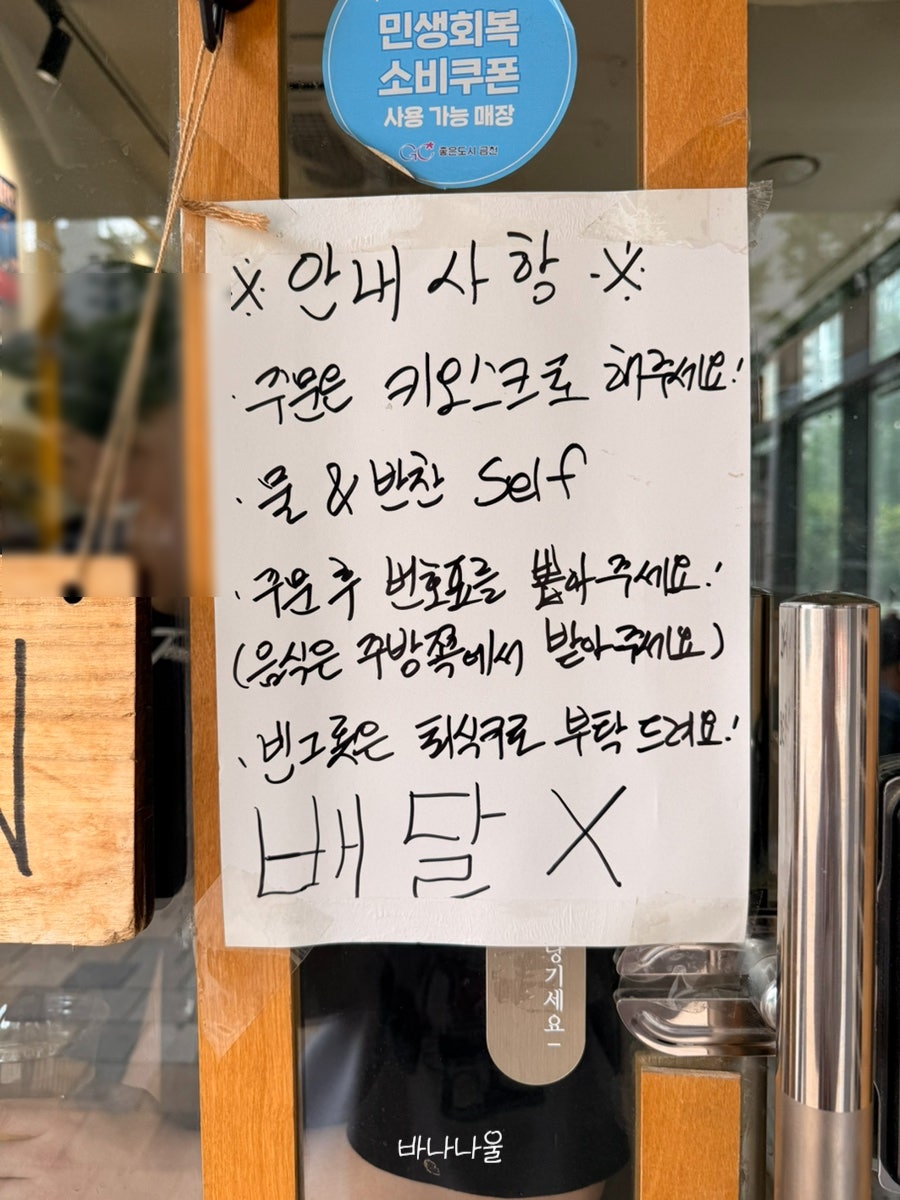 민생회복
소비쿠폰
사용 가능 매장
좋은도시 금천
※ 안내사항 ※
· 주문은 키오스크로 해주세요!
· 물 & 반찬 Self
· 주문 후 번호표를 뽑아주세요!
(음식은 주방쪽에서 받아주세요)
· 빈그릇은 퇴식구로 부탁드려요!
배달 X
당기세요
바나나울